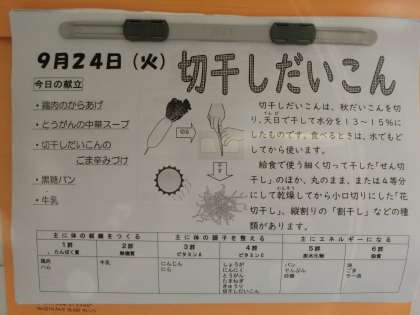 9月24日(火)
切干しだいこん
今日の献立
・鶏肉のからあげ
・とうがんの中華スープ
・切干しだいこんの
ごま辛みづけ
・黒糖パン
・牛乳
切る
干す
切干しだいこんは、秋だいこんを切
り、天日で干して水分を13～15％に
したものです。食べるときは、水でもど
してから使います。
給食で使う細く切って干した「せん切
干し」のほか、丸のまま、または4等分
にして乾燥してから小口切りにした「花
切干し」、縦割りの「割干し」などの種
類があります。
主に体の組織をつくる 主に体の調子を整える 主にエネルギーになる
1群 2群 3群 4群 5群 6群
たんぱく質 無機質 ビタミンA ビタミンC 炭水化物 脂質
鶏肉 牛乳 にんじん しょうが パン 油
ハム にら にんにく でんぷん ごま
とうがん 砂糖 ラー油
たまねぎ
きゅうり
切干しだいこん